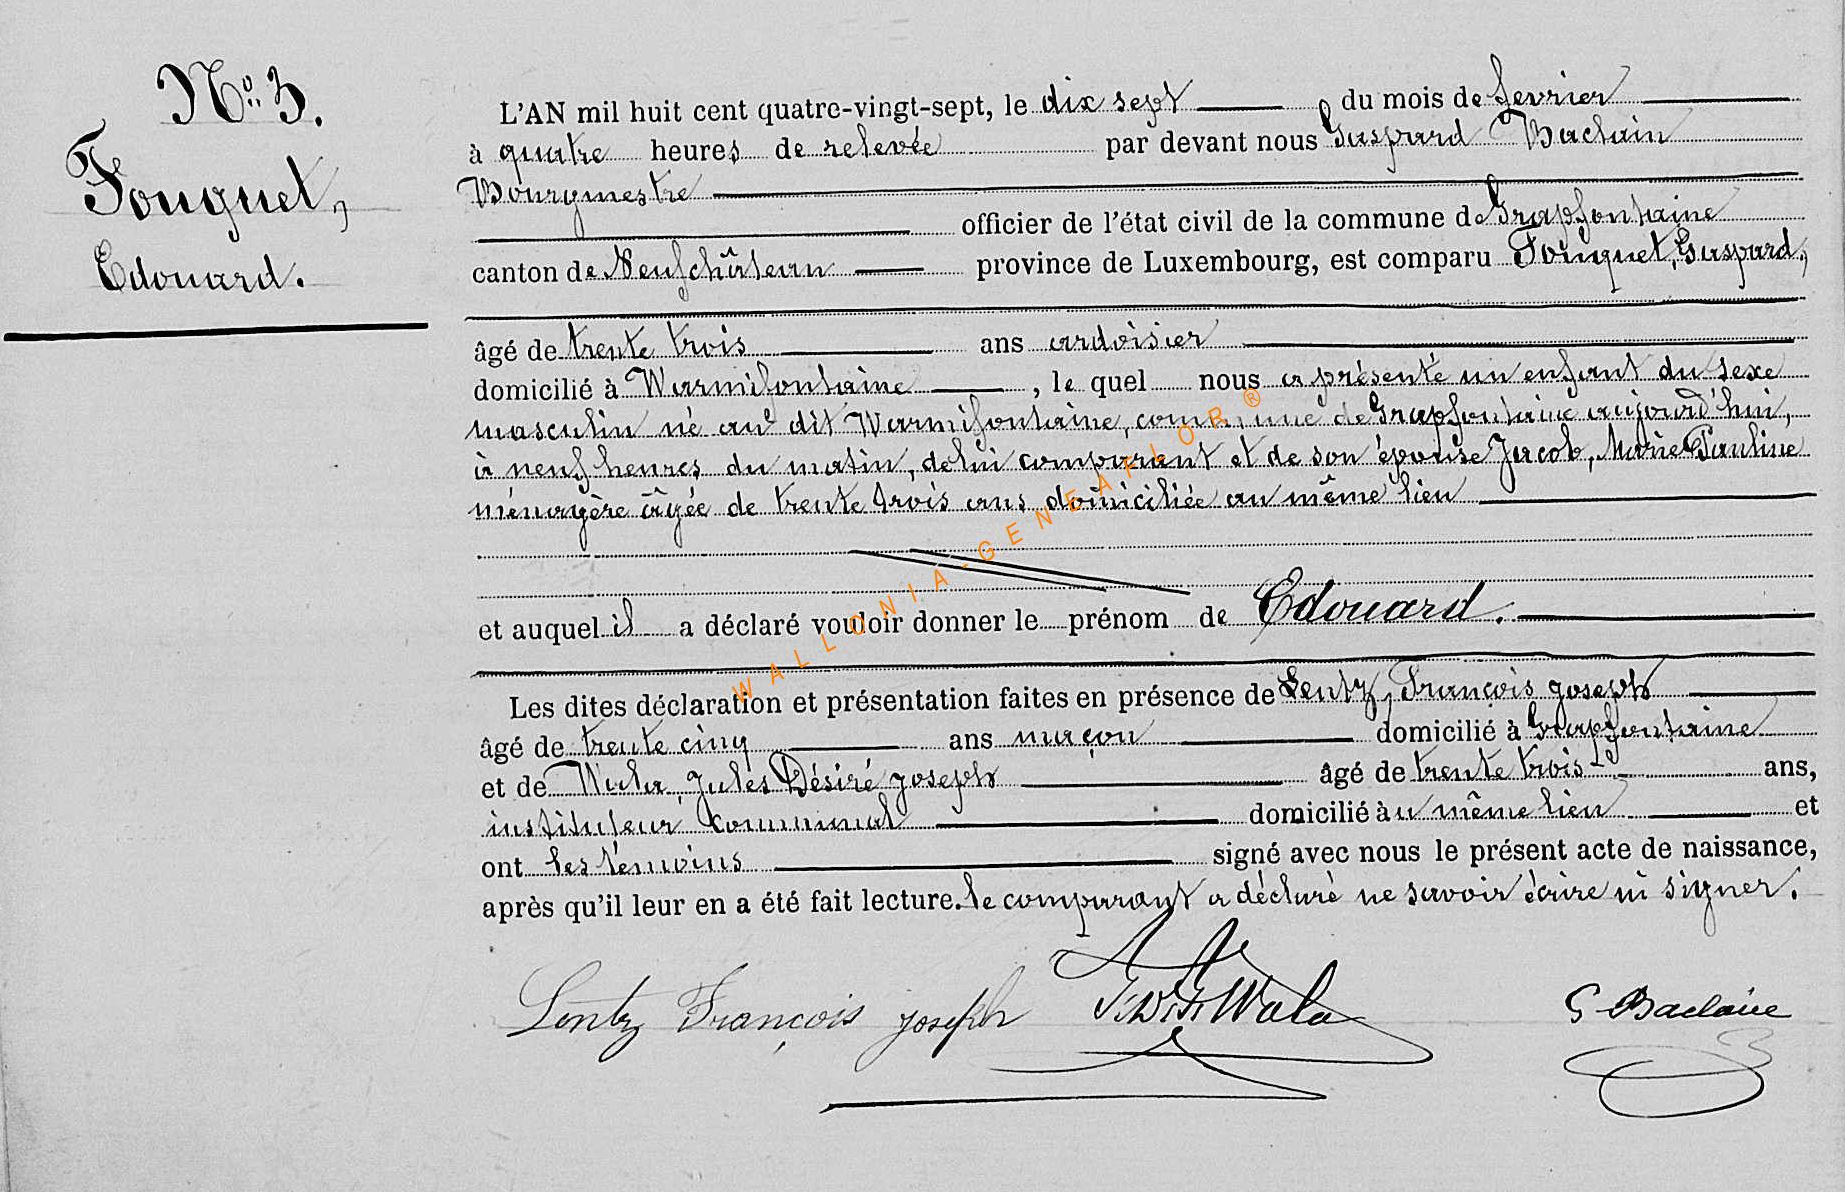 N° 3.
Fouguet,
Edouard.
L'AN mil huit cent quatre-vingt-sept, le dix sept du mois de fevrier
à quatre heures de relevée par devant nous Gaspard Baclain
Bourgmestre
officier de l'état civil de la commune de Grapfontaine
canton de Neufchâteau province de Luxembourg, est comparu Fouguet, Gaspard,
âgé de trente trois ans ardoisier
domicilié à Warmifontaine, le quel nous a présenté un enfant du sexe
masculin né au dit Warmifontaine, commune de Grapfontaine aujourd'hui,
à neuf heures du matin, de lui comparant et de son épouse Jacob, Marie Pauline
ménagère âgée de trente trois ans domiciliée au même lieu
et auquel il a déclaré vouloir donner le prénom de Edouard.
Les dites déclaration et présentation faites en présence de Lentz, François joseph
âgé de trente cinq ans maçon domicilié à Grapfontaine
et de Wala, Jules Désiré joseph âgé de trente trois ans,
instituteur communal domicilié au même lieu et
ont les témoins signé avec nous le présent acte de naissance,
après qu'il leur en a été fait lecture. le comparant a déclaré ne savoir écrire ni signer.
Lentz François joseph J. D. J. Wala G Baclaine
WALLONIA-GENEAFLOR®